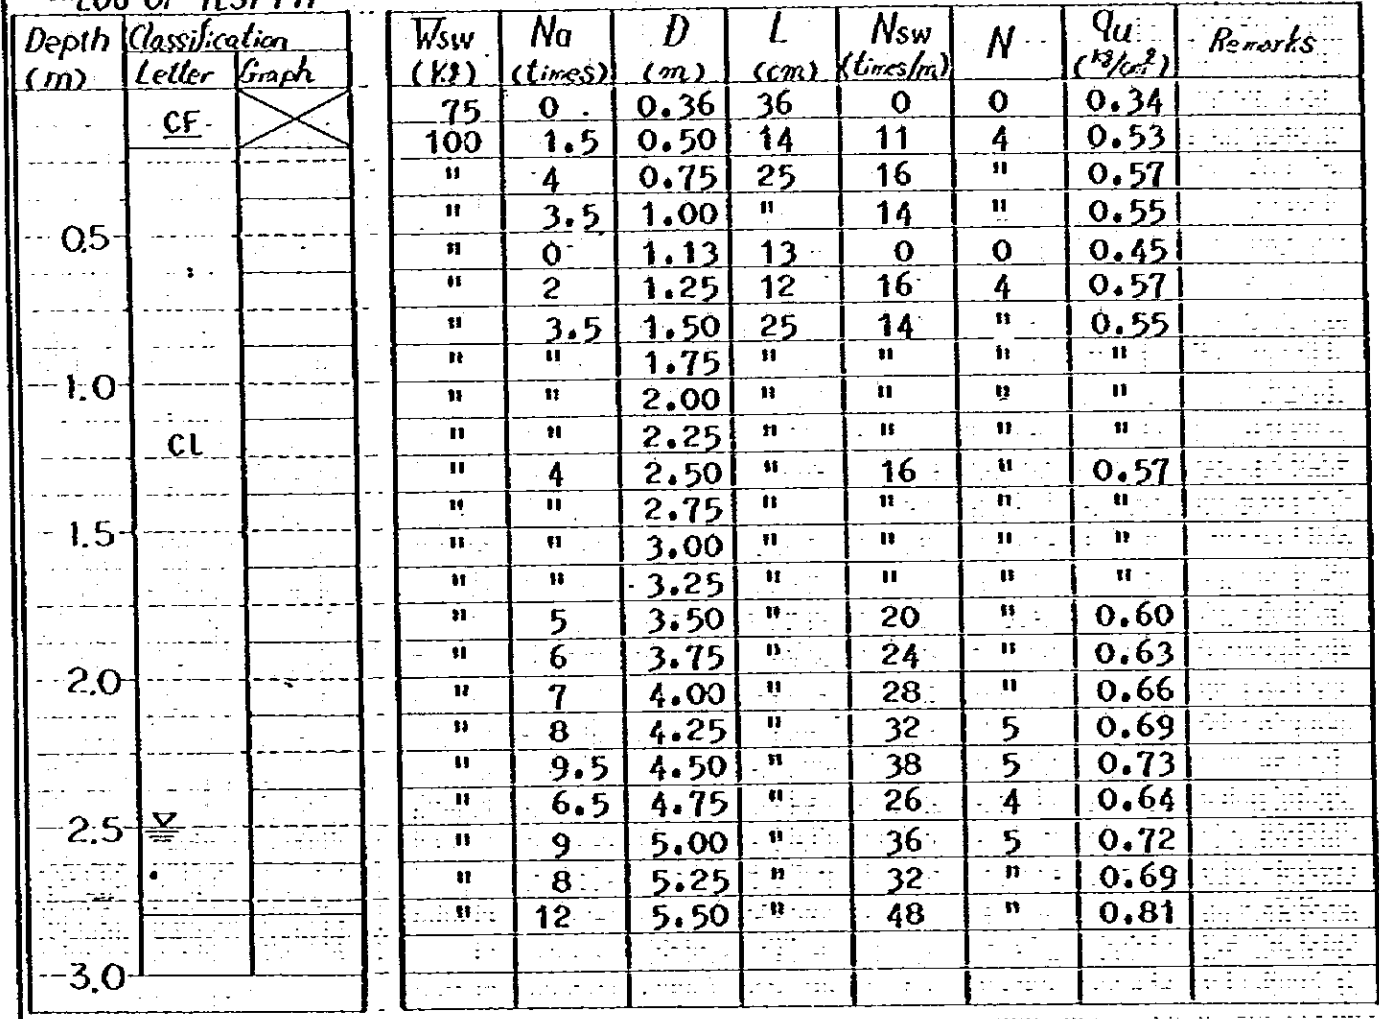 LOG OF TEST PIT
Depth Classification
(m) Letter Graph
CF
0.5
1.0
CL
1.5
2.0
2.5
3.0
Wsw Na D L Nsw N qu Remarks
(kg) (times) (m) (cm) (times/m) (kg/cm²)
75 0 0.36 36 0 0 0.34
100 1.5 0.50 14 11 4 0.53
" 4 0.75 25 16 " 0.57
" 3.5 1.00 " 14 " 0.55
" 0 1.13 13 0 0 0.45
" 2 1.25 12 16 4 0.57
" 3.5 1.50 25 14 " 0.55
" " 1.75 " " " "
" " 2.00 " " " "
" " 2.25 " " " "
" 4 2.50 " 16 " 0.57
" " 2.75 " " " "
" " 3.00 " " " "
" " 3.25 " " " "
" 5 3.50 " 20 " 0.60
" 6 3.75 " 24 " 0.63
" 7 4.00 " 28 " 0.66
" 8 4.25 " 32 5 0.69
" 9.5 4.50 " 38 5 0.73
" 6.5 4.75 " 26 4 0.64
" 9 5.00 " 36 5 0.72
" 8 5.25 " 32 " 0.69
" 12 5.50 " 48 " 0.81